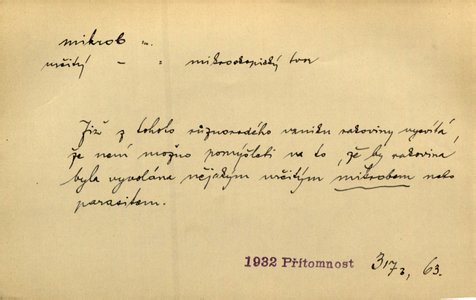 mikrob m.
určitý – = mikroskopický tvor
Již z tohoto různorodého vzniku rakoviny vysvítá,
že není možno pomýšleti na to, že by rakovina
byla vyvolána nějakým určitým mikrobem nebo
parasitem.
1932 Přítomnost 317, 63.